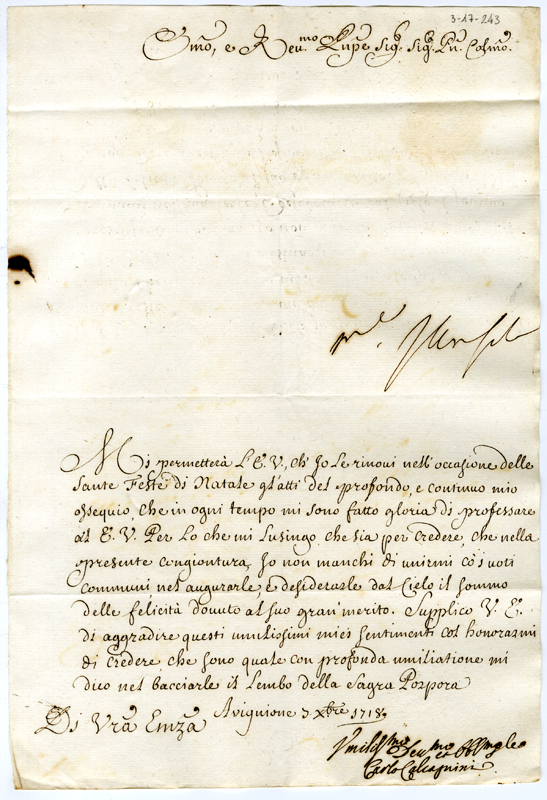 3-17-243
Emo, e Reu.mo Sig.r Sig.r Pñ. Colmo.
Mi permetterà L'E.V., ch'Io Le rinoui nell'occasione delle
Sante Feste di Natale gl'atti del profondo, e continuo mio
ossequio, che in ogni tempo mi sono fatto gloria di professare
all' E. V. Per Lo che mi Lusingo, che sia per credere, che nella
presente congiontura, Io non manchi di unirmi co's uoti
communi nel augurarle, e desiderarle dal Cielo il sommo
delle felicità douuto al suo gran merito. Supplico V. E.
di aggradire questi umilissimi miei sentimenti col honorarmi
di credere che sono quale con profonda umiliatione mi
dico nel bacciarle il Lembo della Sagra Porpora
Di Vrã Emzã Auignione 3. Xbre 1718,
Carlo Calcagnini